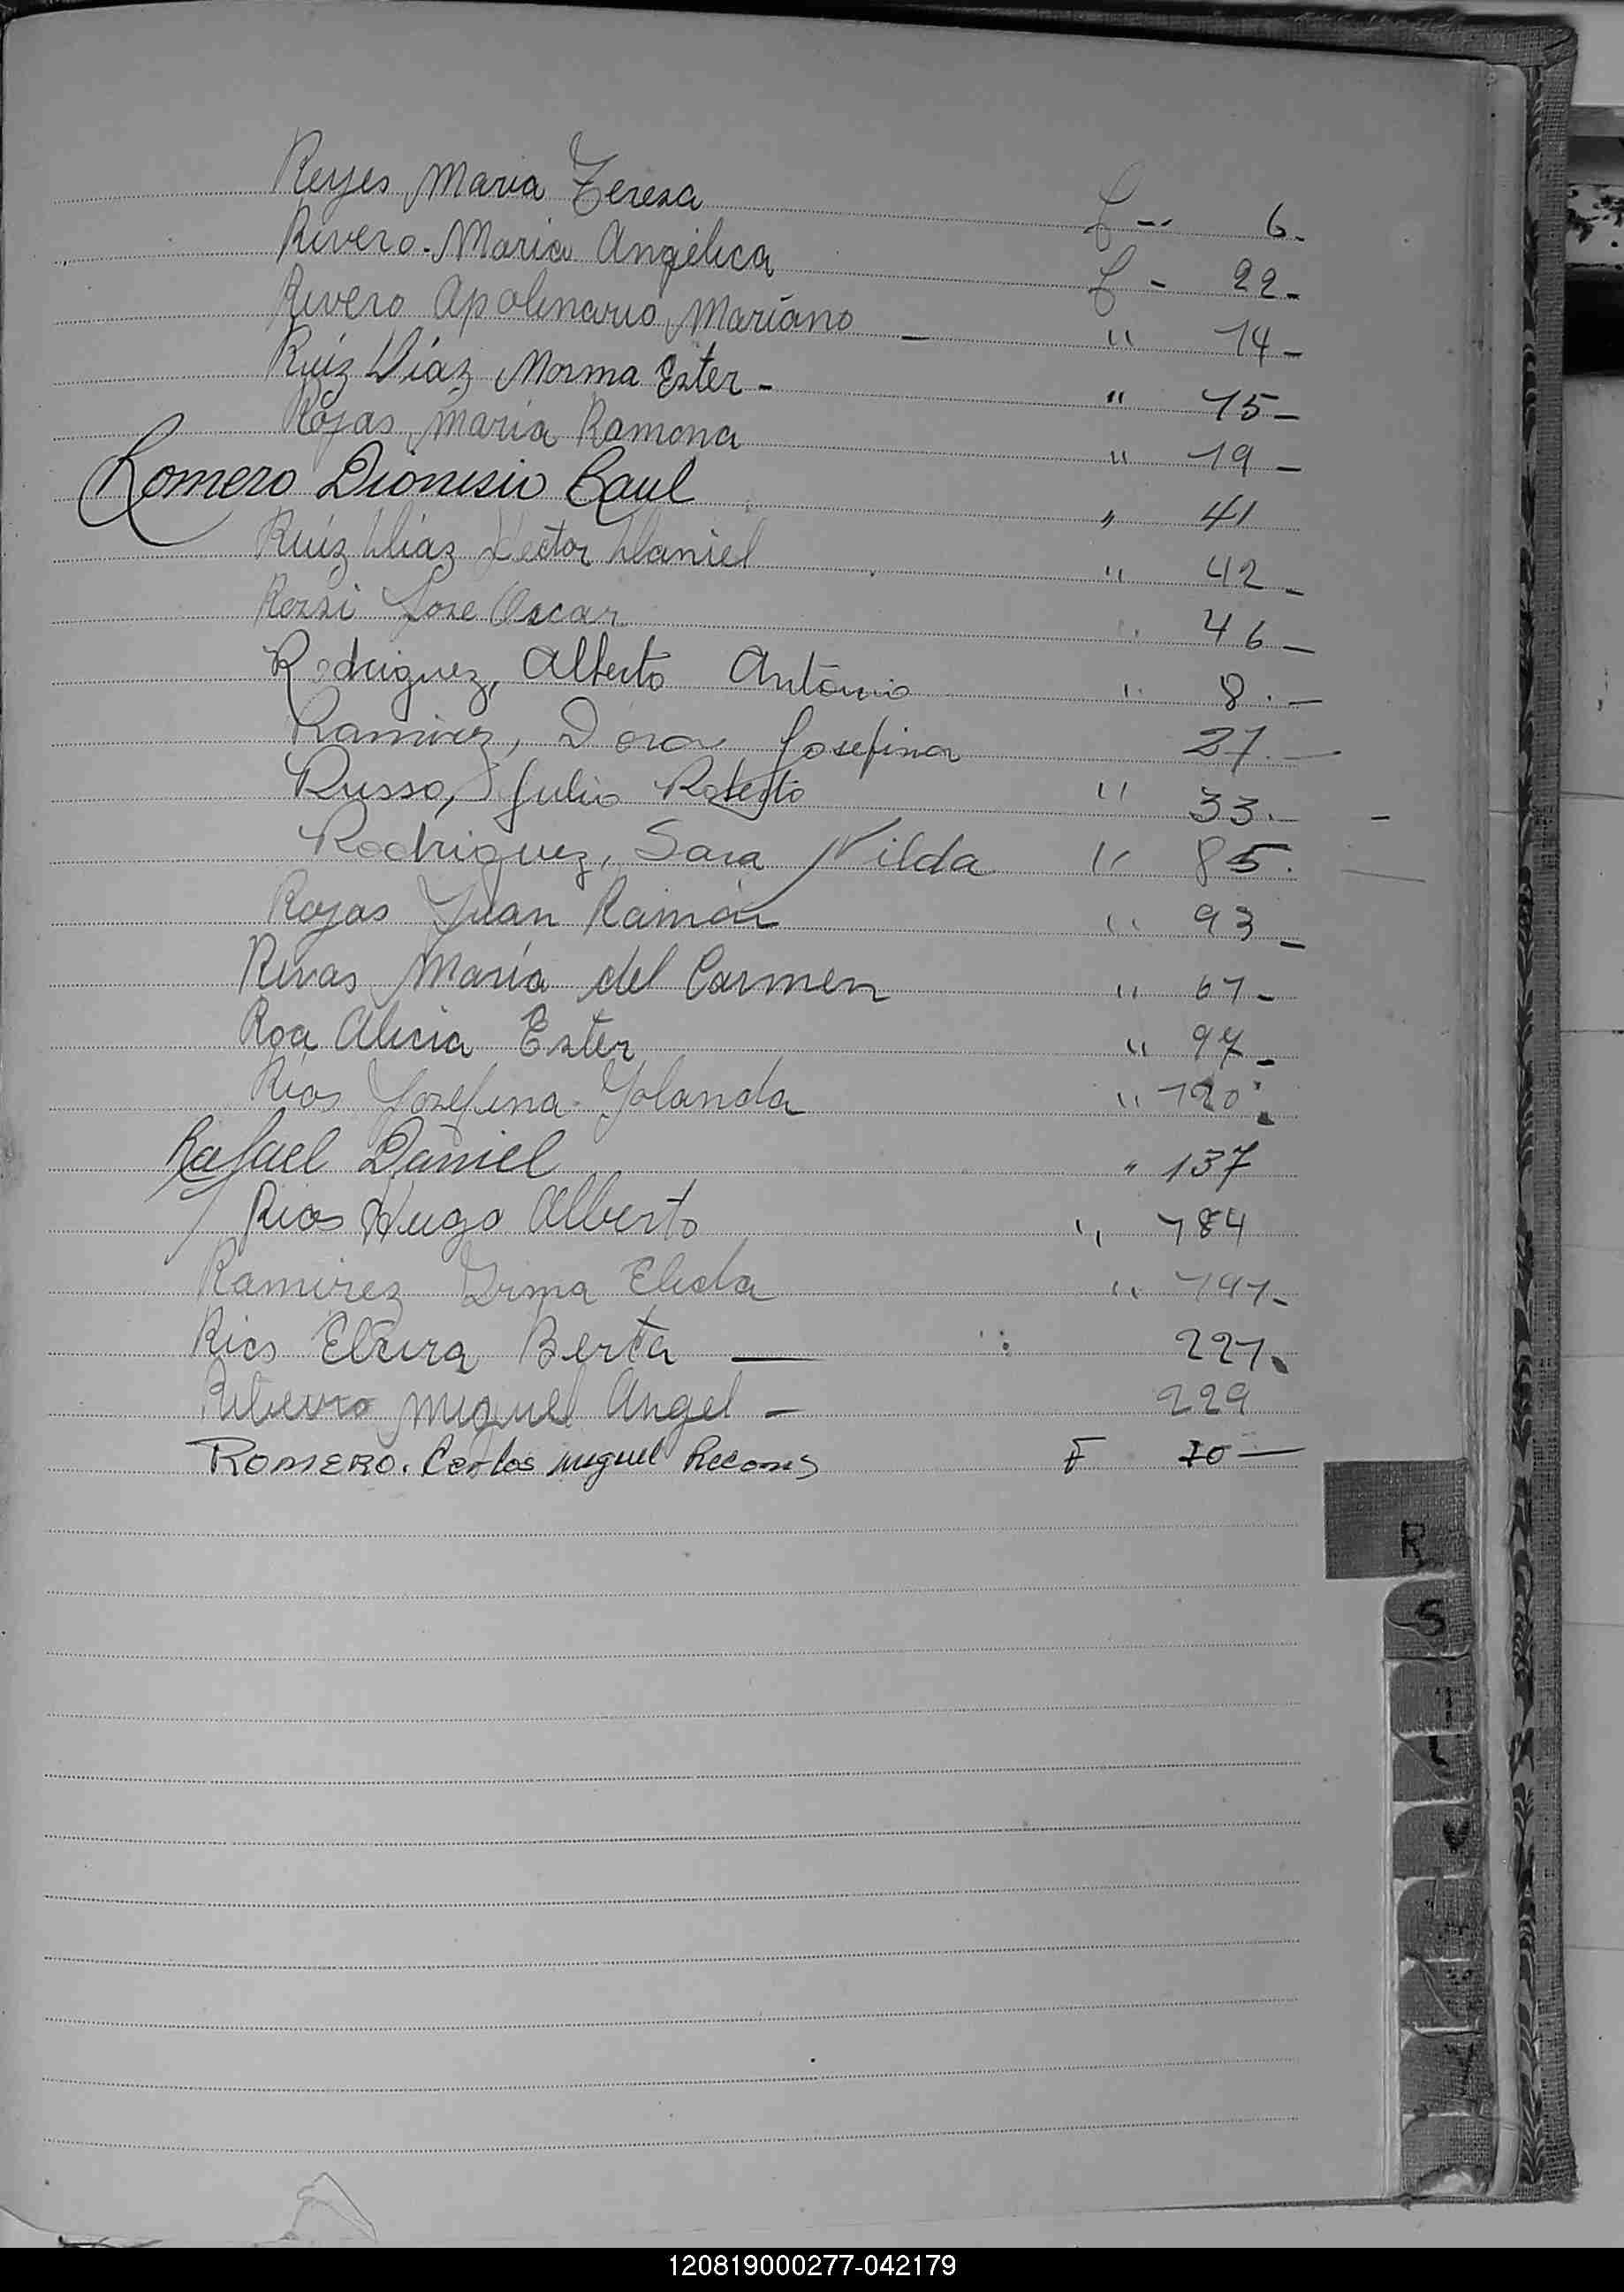 Reyes Maria Teresa f -- 6.
Rivero - Maria Angélica f - 22 -
Rivero Apolinario Mariano - " 14 -
Ruiz Díaz Norma Ester - " 15 -
Rojas María Ramona " 19 -
Romero Dionisio Raul " 41
Ruíz Díaz Hector Daniel " 42 -
Rossi Jose Oscar 46 -
Rodriguez, Alberto Antonio " 8. -
Ramirez, Dora Josefina 27. -
Russo, Julio Roberto " 33. -
Rodriguez, Sara Nilda " 85.
Rojas Juan Ramón " 93 -
Rivas María del Carmen " 67 -
Roa Alicia Ester " 97 -
Rios Josefina Yolanda " 120
Rafael Daniel " 137
Rios Hugo Alberto " 184
Ramirez Irma Elida " 191 -
Rios Elvira Berta — " 221.
Ribeiro Miguel Angel - 229
ROMERO. Carlos Miguel Recons F 70 —
R
S
T
120819000277-042179